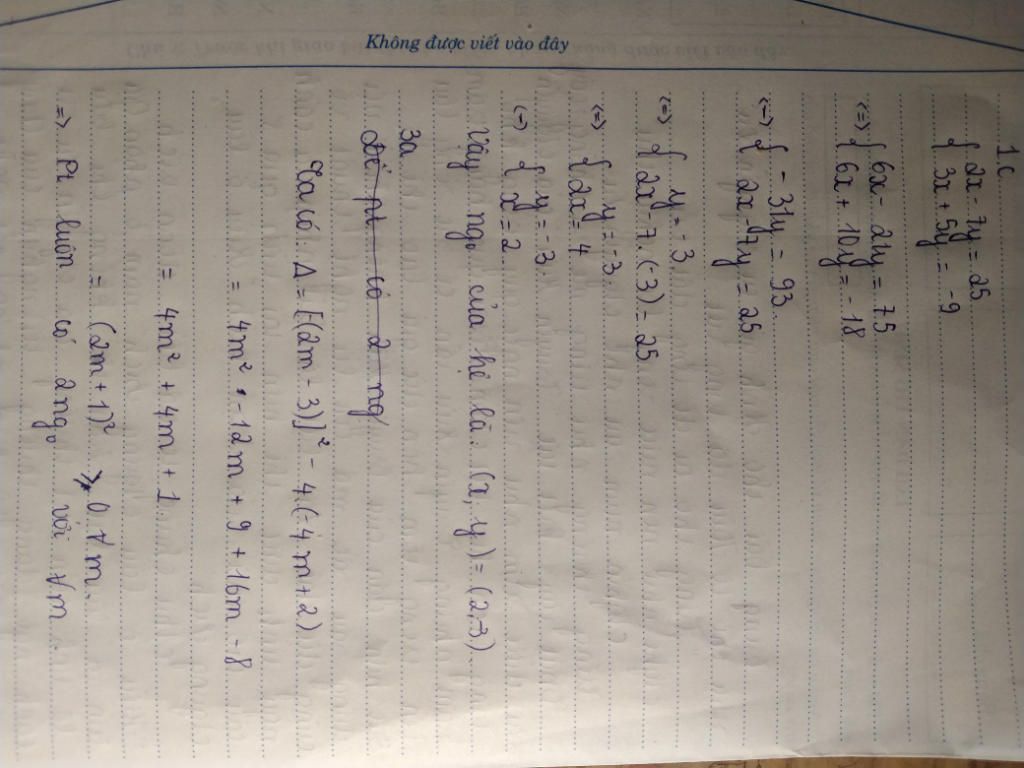 Không được viết vào đây
1.c
{ 2x - 7y = 25
{ 3x + 5y = -9
<=> { 6x - 21y = 75
{ 6x + 10y = -18
<=> { -31y = 93
{ 2x - 7y = 25
<=> { y = -3
{ 2x - 7.(-3) = 25
<=> { y = -3
{ 2x = 4
<=> { y = -3
{ x = 2
Vậy ngo của hệ là: (x, y) = (2,-3)
3a
Để pt có 2 ng
Ta có: Δ = [(2m - 3)]² - 4.(-4m + 2)
= 4m² - 12m + 9 + 16m - 8
= 4m² + 4m + 1
= (2m + 1)² ≥ 0 ∀m.
=> Pt luôn có 2 ngo với ∀m